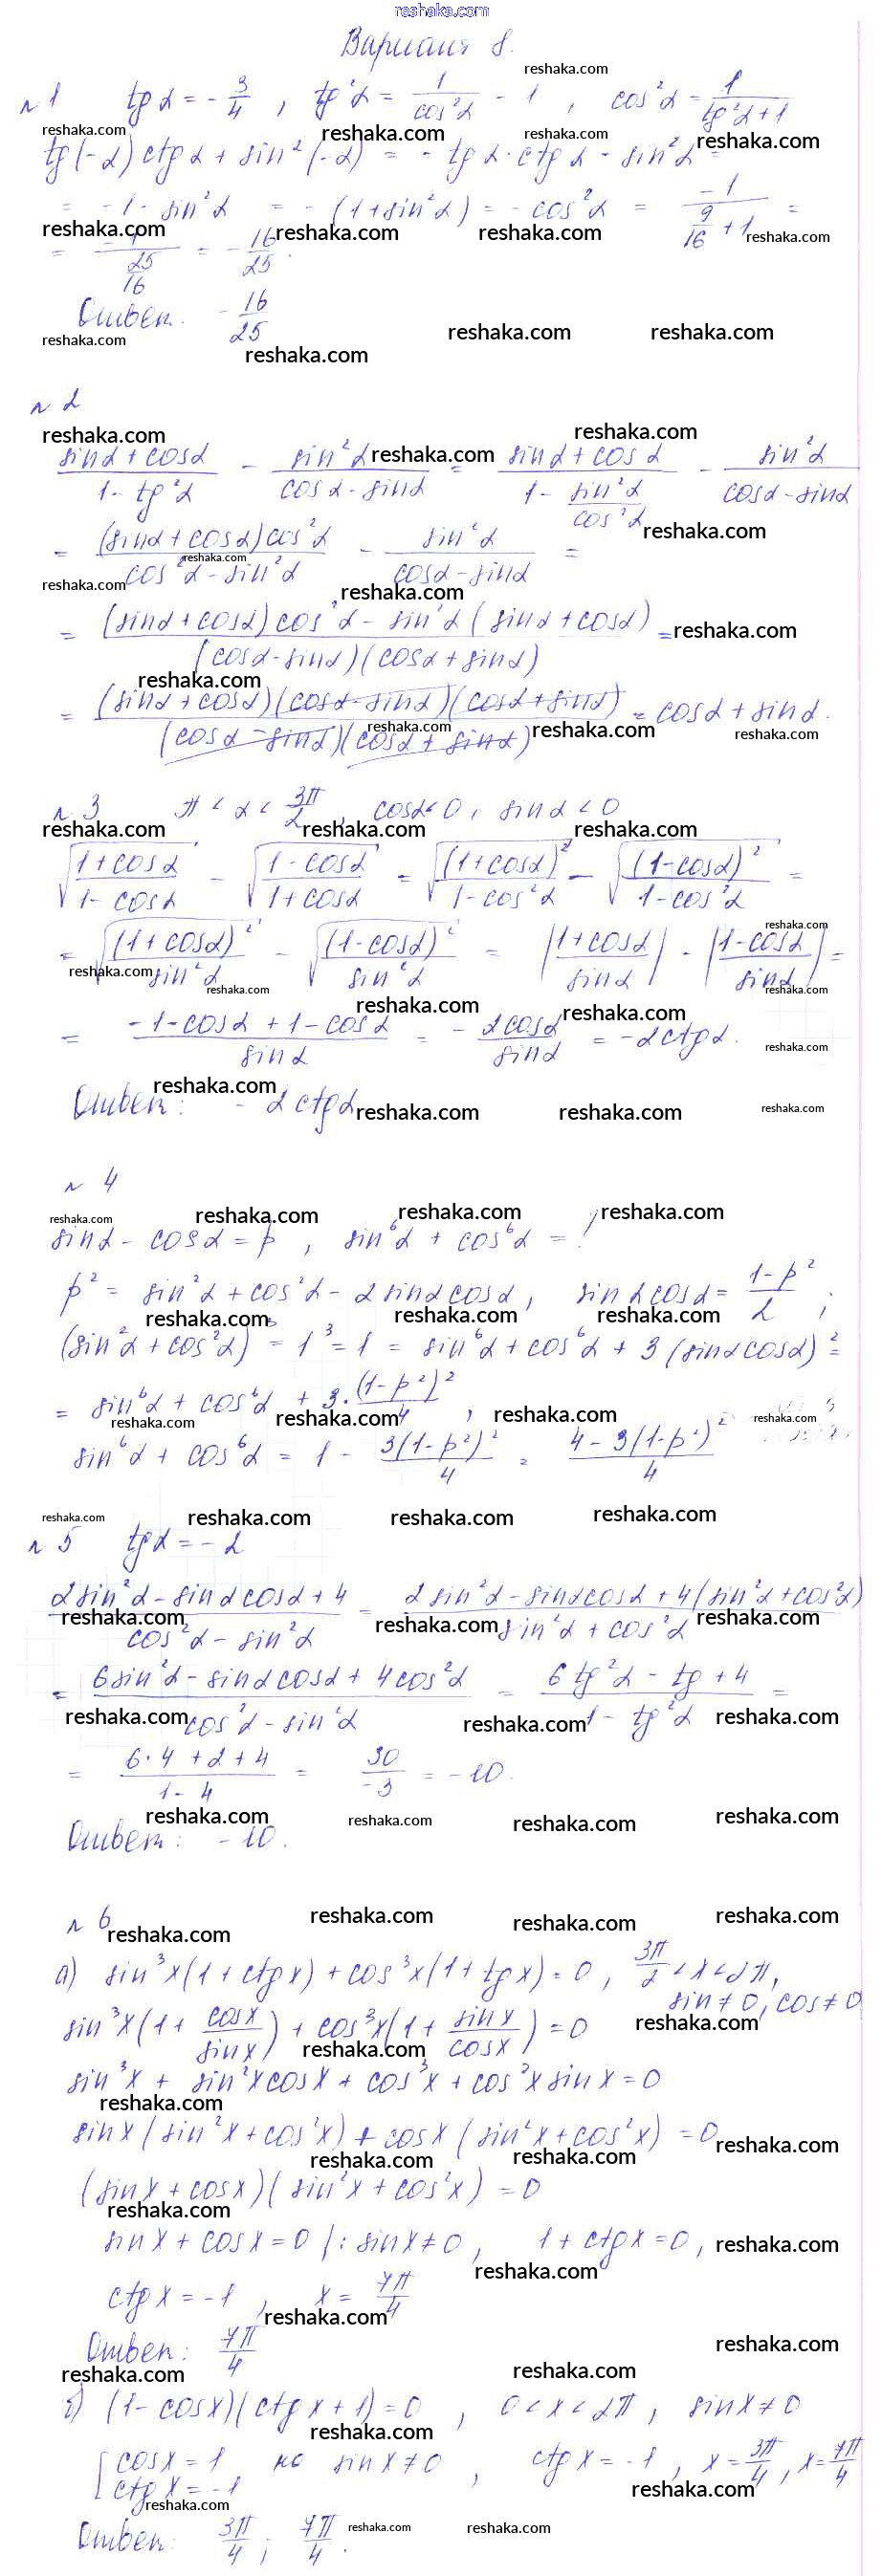 reshaka.com
Вариант 8.
№1 tg α = -3/4 , tg²α = 1/cos²α - 1 , cos²α = 1/(tg²α+1)
tg(-α) ctg α + sin²(-α) = - tg α · ctg α - sin²α =
= -1 - sin²α = -(1+sin²α) = -cos²α = -1/(9/16 + 1) =
= -1/(25/16) = -16/25.
Ответ. -16/25
№ 2
(sinα + cosα)/(1 - tg²α) - sin²α/(cosα - sinα) = (sinα + cosα)/(1 - sin²α/cos²α) - sin²α/(cosα - sinα)
= (sinα + cosα)cos²α/(cos²α - sin²α) - sin²α/(cosα - sinα) =
= ((sinα + cosα)cos²α - sin²α(sinα + cosα))/((cosα - sinα)(cosα + sinα)) =
= (sinα + cosα)(cosα - sinα)(cosα + sinα)/((cosα - sinα)(cosα + sinα)) = cosα + sinα.
№ 3 π < α < 3π/2 , cosα < 0, sinα < 0
√((1+cosα)/(1-cosα)) - √((1-cosα)/(1+cosα)) = √((1+cosα)²/(1-cos²α)) - √((1-cosα)²/(1-cos²α)) =
= √((1+cosα)²/sin²α) - √((1-cosα)²/sin²α) = |(1+cosα)/sinα| - |(1-cosα)/sinα| =
= (-1-cosα + 1-cosα)/sinα = - 2cosα/sinα = -2ctgα.
Ответ: - 2ctgα
№ 4
sinα - cosα = p , sin⁶α + cos⁶α = ?
p² = sin²α + cos²α - 2 sinα cosα, sinα cosα = (1-p²)/2 ;
(sin²α + cos²α)³ = 1³ = 1 = sin⁶α + cos⁶α + 3(sinα cosα)² =
= sin⁶α + cos⁶α + 3·(1-p²)²/4 ,
sin⁶α + cos⁶α = 1 - 3(1-p²)²/4 = (4 - 3(1-p²)²)/4
№ 5 tgα = -2
(2sin²α - sinα cosα + 4)/(cos²α - sin²α) = (2sin²α - sinα cosα + 4(sin²α + cos²α))/(sin²α + cos²α)
= (6sin²α - sinα cosα + 4cos²α)/(cos²α - sin²α) = (6tg²α - tg + 4)/(1 - tg²α) =
= (6·4 + 2 + 4)/(1 - 4) = 30/-3 = -10.
Ответ: -10.
№ 6
а) sin³x(1 + ctgx) + cos³x(1 + tgx) = 0, 3π/2 < x < 2π,
sin ≠ 0, cos ≠ 0
sin³x(1 + cosx/sinx) + cos³x(1 + sinx/cosx) = 0
sin³x + sin²x cosx + cos³x + cos²x sinx = 0
sinx(sin²x + cos²x) + cosx(sin²x + cos²x) = 0
(sinx + cosx)(sin²x + cos²x) = 0
sinx + cosx = 0 |: sinx ≠ 0, 1 + ctgx = 0,
ctgx = -1 , x = 7π/4
Ответ: 7π/4
б) (1 - cosx)(ctgx + 1) = 0 , 0 < x < 2π, sinx ≠ 0
[cosx = 1 но sinx ≠ 0 , ctgx = -1 , x = 3π/4 , x = 7π/4
ctgx = -1
Ответ: 3π/4 ; 7π/4.